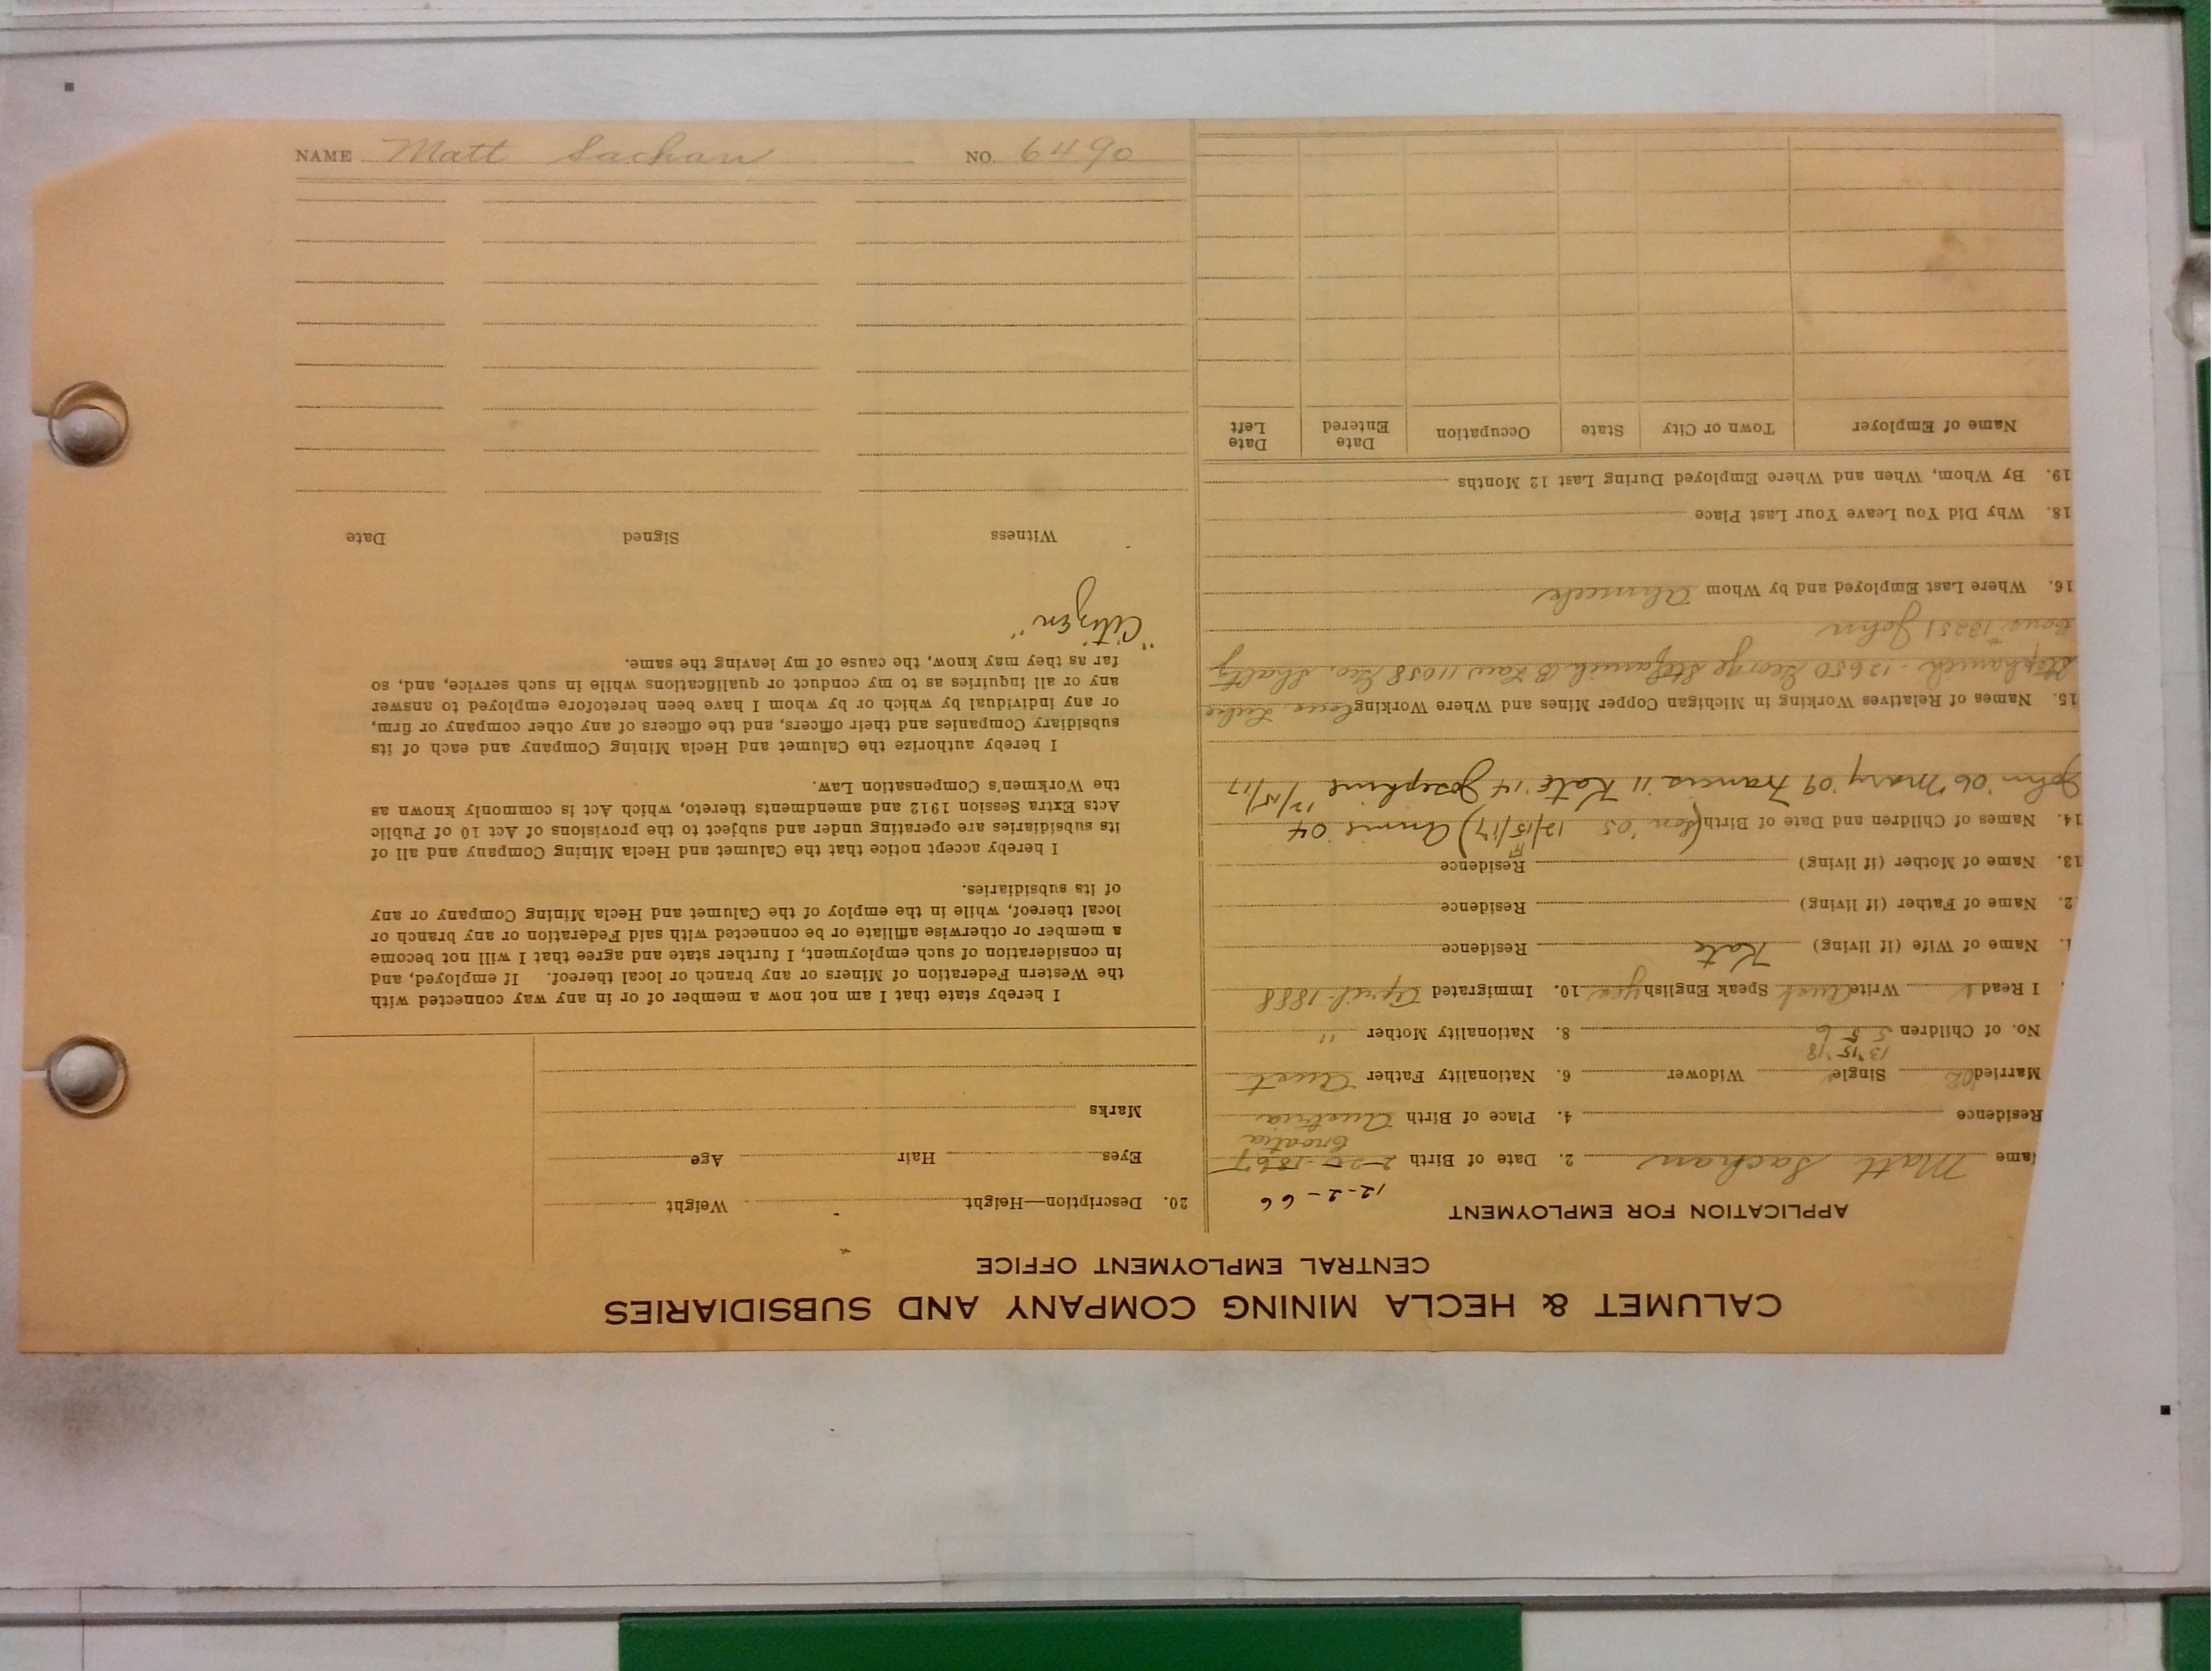 CALUMET & HECLA MINING COMPANY AND SUBSIDIARIES
CENTRAL EMPLOYMENT OFFICE
APPLICATION FOR EMPLOYMENT
12-2-66
ame Matt Sachan 2. Date of Birth 2-25-1867
Croatia
Residence 4. Place of Birth Austria
Married Single Widower 6. Nationality Father Aust
13 '15 '18
No. of Children 5 5 6 8. Nationality Mother "
I Read Write Aust Speak English yes 10. Immigrated April 1888
1. Name of Wife (if living) Kate Residence
2. Name of Father (if living) Residence
13. Name of Mother (if living) Residence
14. Names of Children and Date of Birth (Son '05 12/15/17) Annie 04
John '06 Mary '09 Francis 11 Kate '14 Josephine 12/15/17
15. Names of Relatives Working in Michigan Copper Mines and Where Working Luke
Stephanich - 13650 George Stefanich B Law 11058 Geo. Shaltz
13251 John
16. Where Last Employed and by Whom Ahmeek
18. Why Did You Leave Your Last Place
19. By Whom, When and Where Employed During Last 12 Months
Name of Employer Town or City State Occupation Date Entered Date Left
20. Description—Height Weight
Eyes Hair Age
Marks
I hereby state that I am not now a member of or in any way connected with
the Western Federation of Miners or any branch or local thereof. If employed, and
in consideration of such employment, I further state and agree that I will not become
a member or otherwise affiliate or be connected with said Federation or any branch or
local thereof, while in the employ of the Calumet and Hecla Mining Company or any
of its subsidiaries.
I hereby accept notice that the Calumet and Hecla Mining Company and all of
its subsidiaries are operating under and subject to the provisions of Act 10 of Public
Acts Extra Session 1912 and amendments thereto, which Act is commonly known as
the Workmen's Compensation Law.
I hereby authorize the Calumet and Hecla Mining Company and each of its
subsidiary Companies and their officers, and the officers of any other company or firm,
or any individual by which or by whom I have been heretofore employed to answer
any or all inquiries as to my conduct or qualifications while in such service, and, so
far as they may know, the cause of my leaving the same.
"Citizen"
Witness Signed Date
NAME Matt Sachan NO. 6490